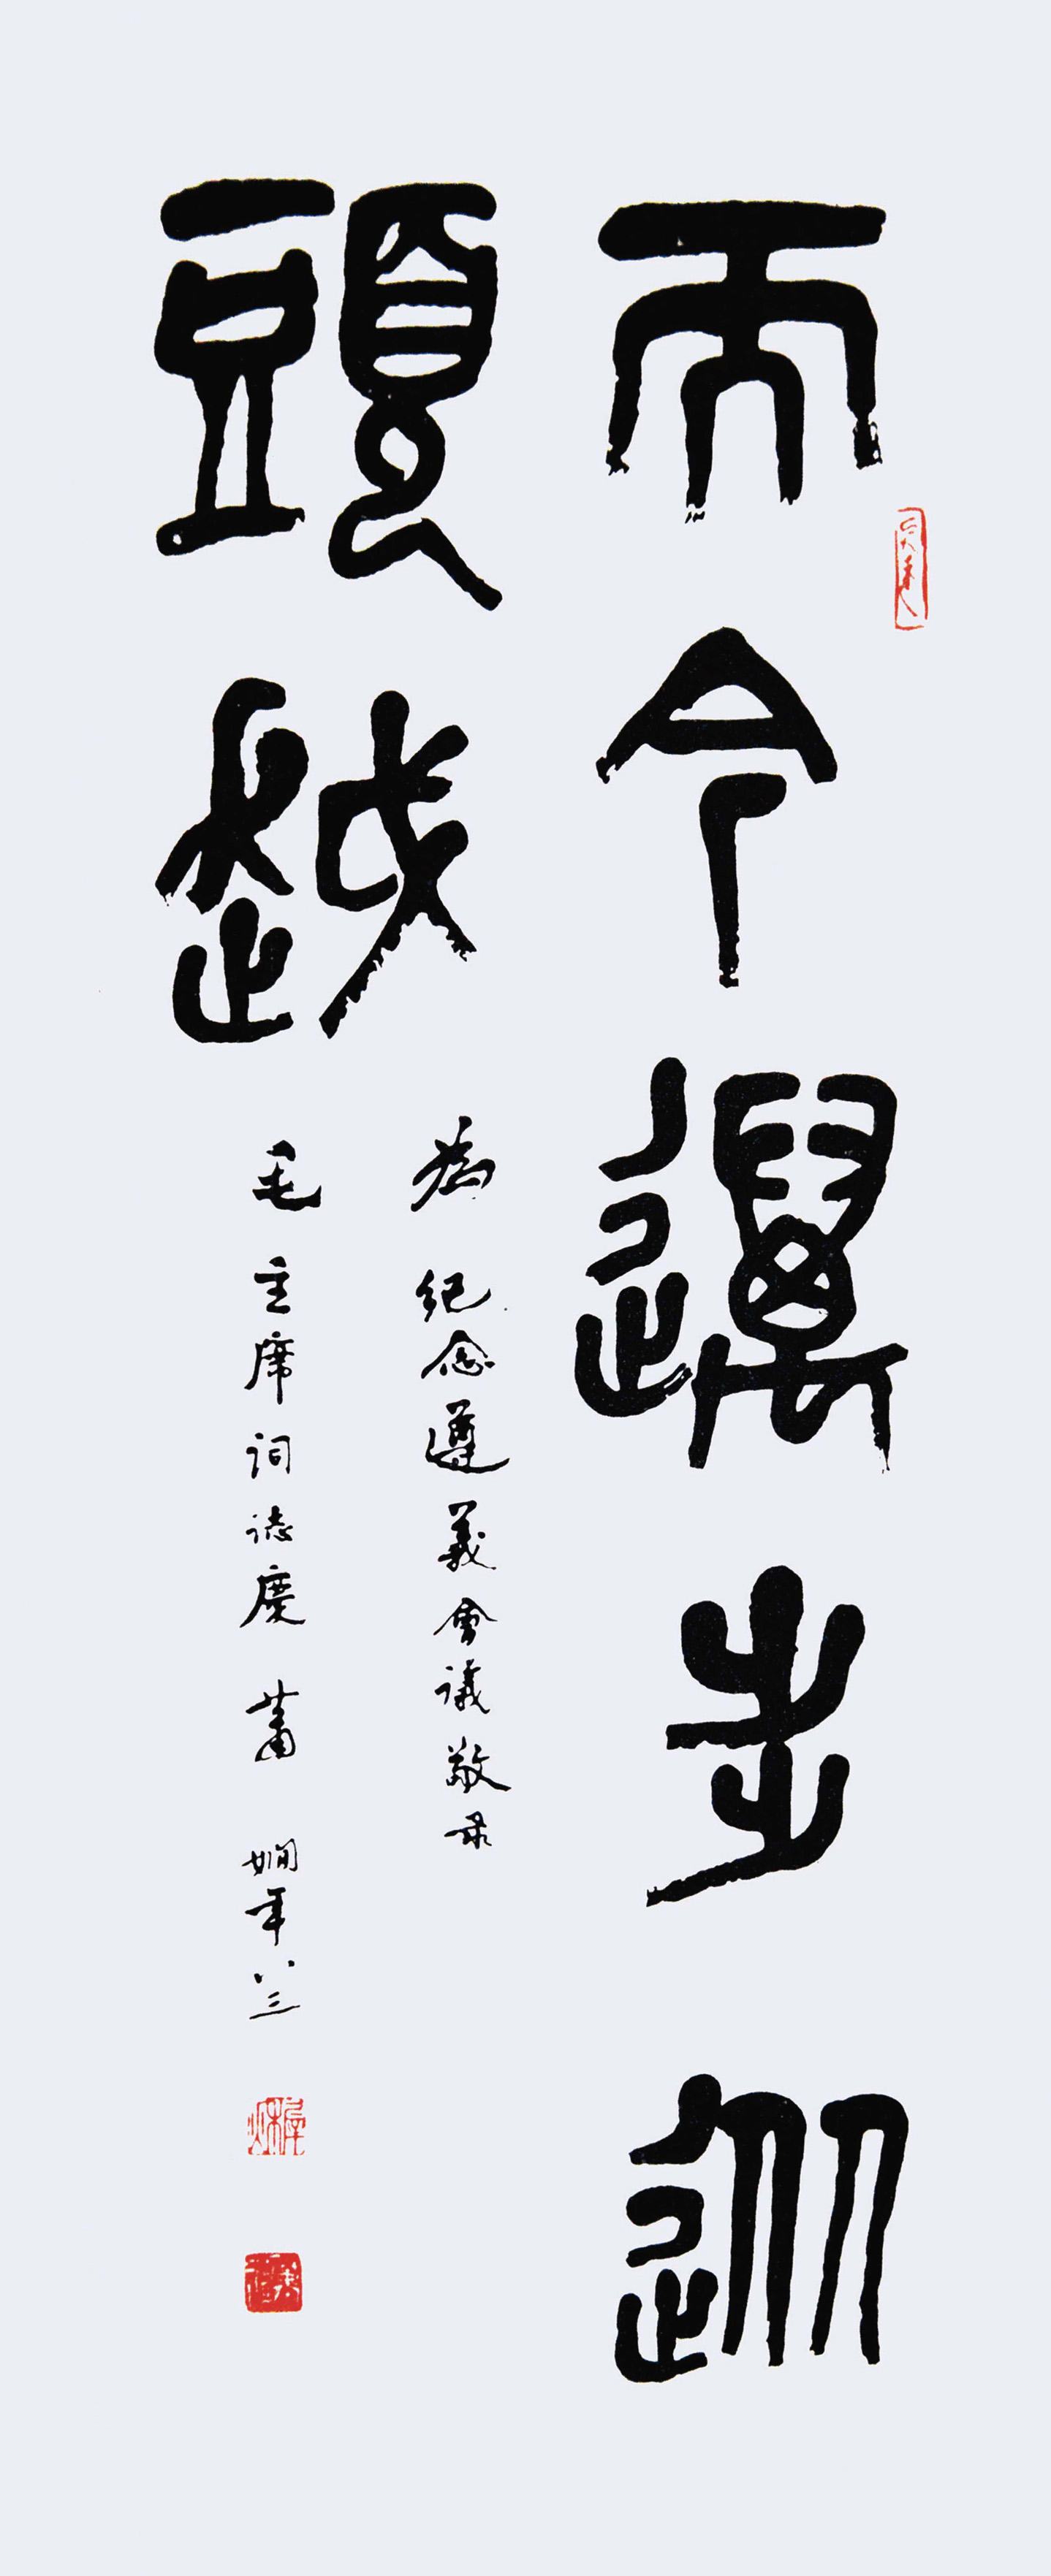 而今邁步從
頭越
為紀念遵義會議敬录
毛主席詞誌慶 蕭嫻年八三